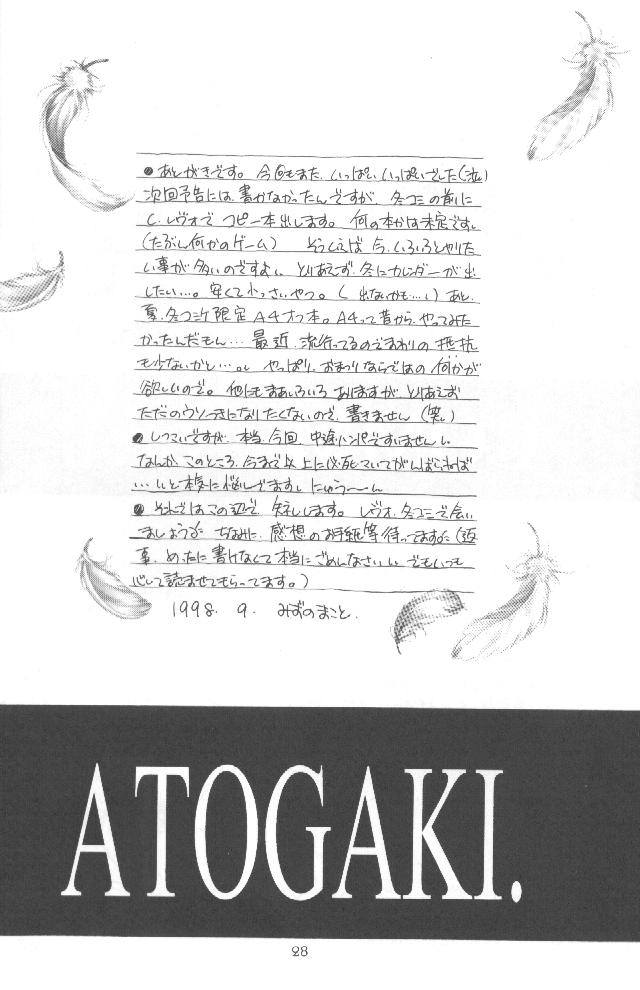 ●あとがきです。今回もまた、いっぱいいっぱいでした(泣)
次回予告には書かなかったんですが、冬コミの前に
C.レヴォで コピー本出します。何の本かは未定です。
(たぶん何かのゲーム) そういえば今、いろいろとやりた
い事が多いのですよ。とりあえず、冬にカレンダーが出
したい…。安くて小っさいやつ。( 出ないかも…。) あと、
夏、冬コミケ限定A4オフ本。A4って昔から、やってみた
かったんだもん… 最近、流行ってるのでまわりの 抵抗
も少ないかと…。 やっぱり、おまつりならではの 何かが
欲しいので。他にもまあいろいろありますが、とりあえず
ただのウソつきになりたくないので、書きません(笑)
●しつこいですが、本当、今回、中途ハンパですいません。
なんか、このところ、今まで以上に必死こいてがんばらねば
…。と本気に悩んでます。にゅう〜〜ん
●それではこの辺で、失礼します。レヴォ、冬コミで会い
ましょう ちなみに、感想のお手紙等待ってます(返
事、めったに書けなくて本当にごめんなさい。でもいつも
心して読ませてもらってます。)
1998. 9. みずのまこと.
ATOGAKI.
28